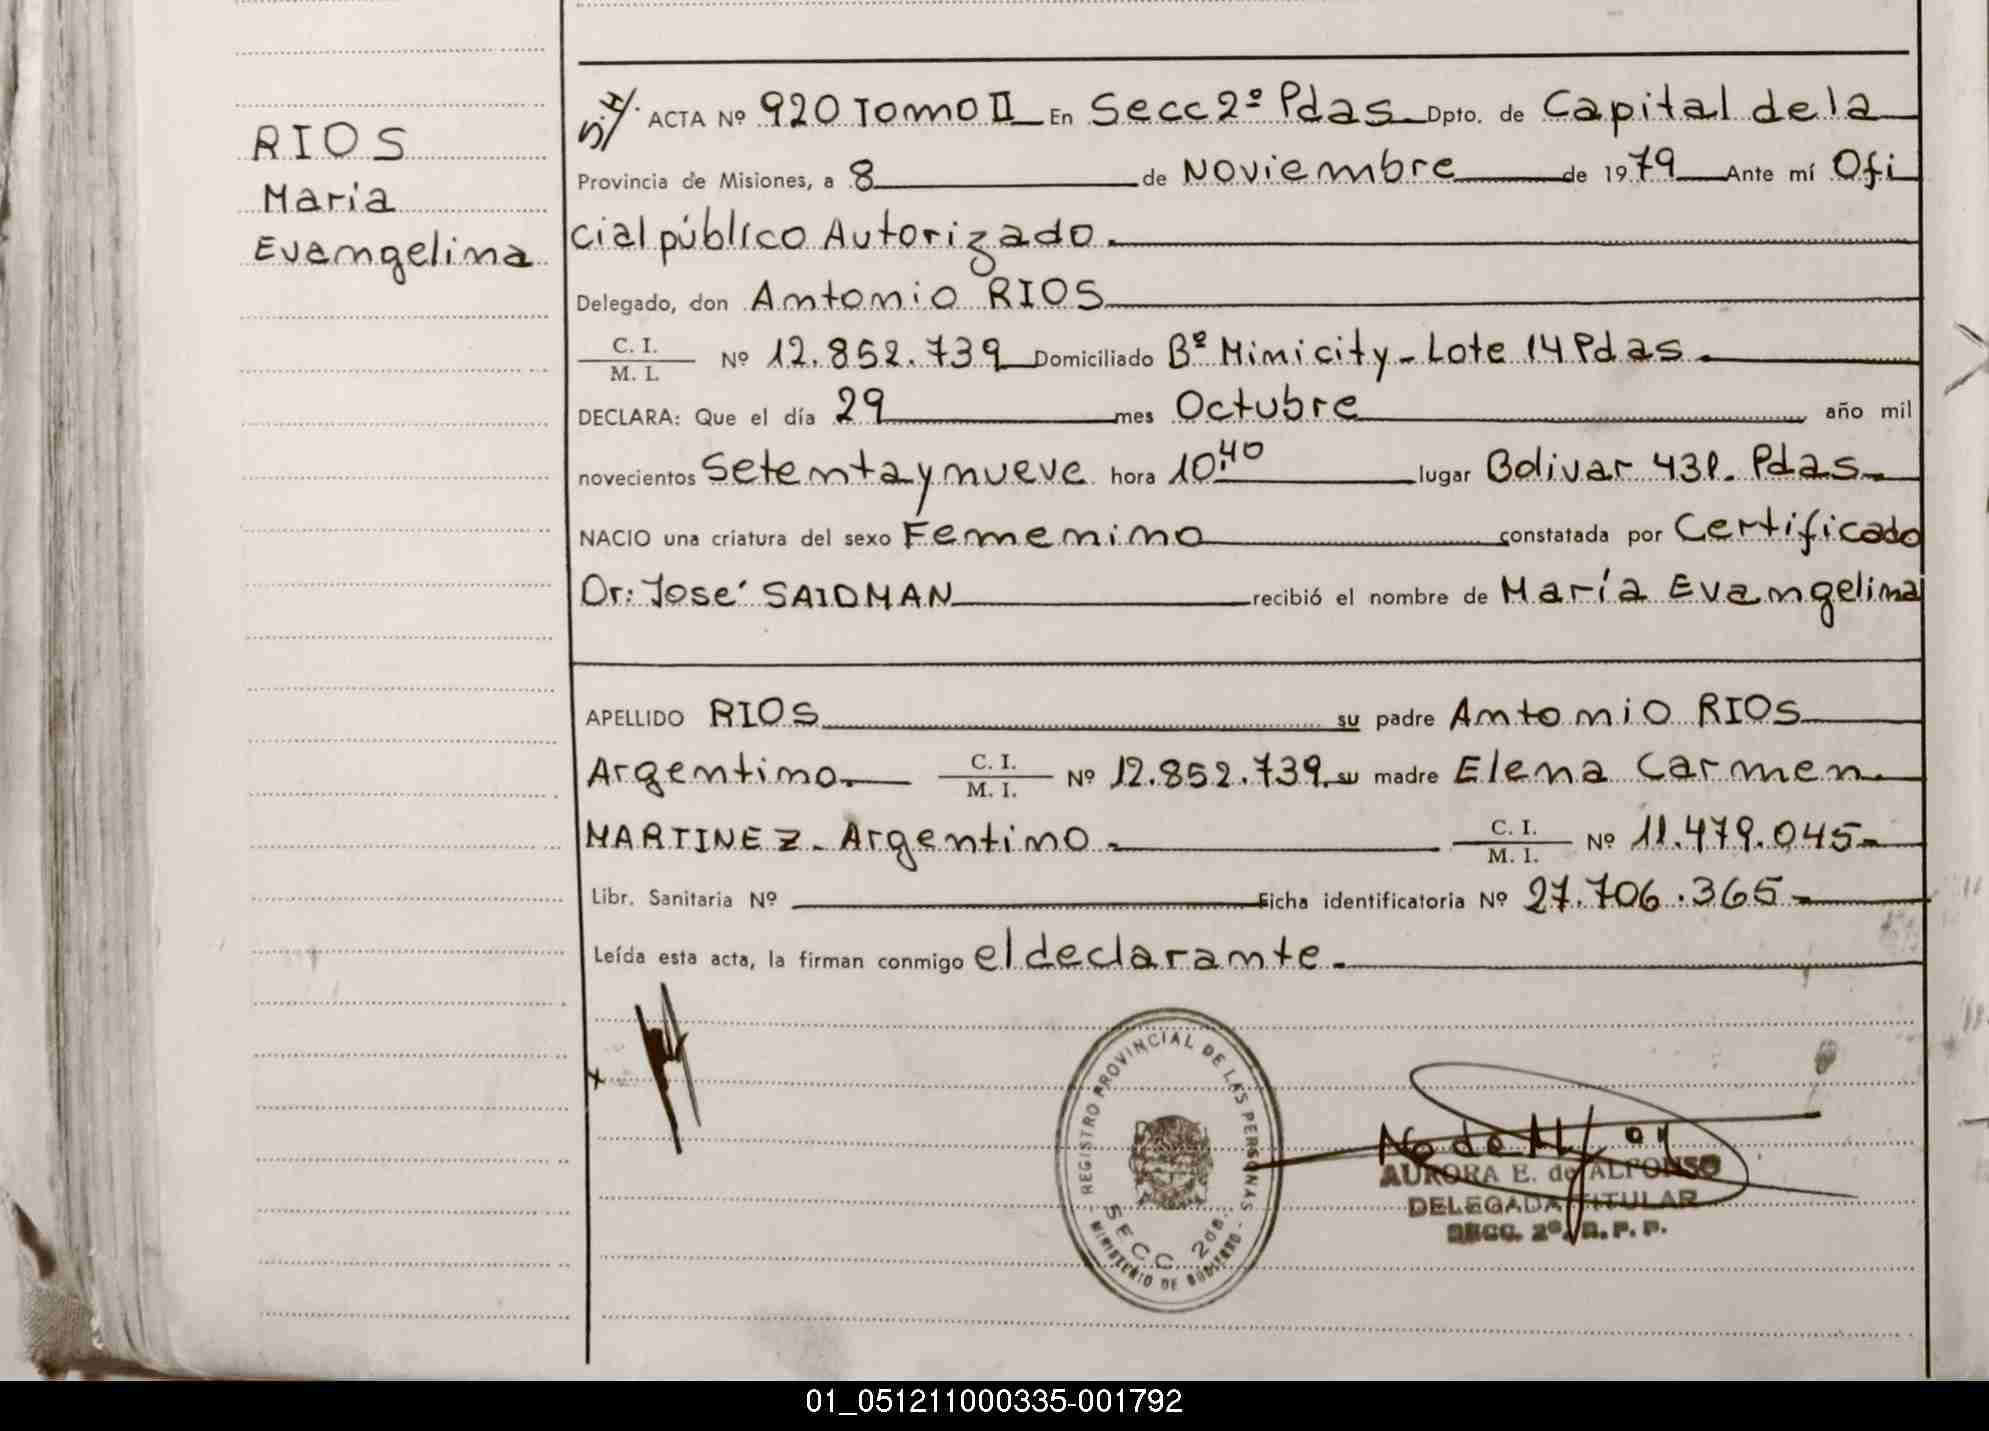 RIOS
Maria
Evangelina
S.H/. ACTA Nº 920 Tomo II En Secc 2º Pdas Dpto. de Capital de la
Provincia de Misiones, a 8 de Noviembre de 1979 Ante mí Ofi
cial público Autorizado.
Delegado, don Antonio RIOS
C. I.
M. I. Nº 12.852.739 Domiciliado Bº Minicity - Lote 14 Pdas.
DECLARA: Que el día 29 mes Octubre año mil
novecientos Setenta y nueve hora 10.40 lugar Bolivar 431. Pdas.
NACIO una criatura del sexo Femenino constatada por Certificado
Dr: José SAIDMAN recibió el nombre de María Evangelina
APELLIDO RIOS su padre Antonio RIOS
Argentino. C. I.
M. I. Nº 12.852.739. su madre Elena Carmen
MARTINEZ. Argentino. C. I.
M. I. Nº 11.479.045-
Libr. Sanitaria Nº Ficha identificatoria Nº 27.706.365-
Leída esta acta, la firman conmigo el declarante.
REGISTRO PROVINCIAL DE LAS PERSONAS
SECC 2da.
- MINISTERIO DE GOBIERNO -
AURORA E. de ALFONSO
DELEGADA TITULAR
SECC. 2ª. R. P. P.
01_051211000335-001792